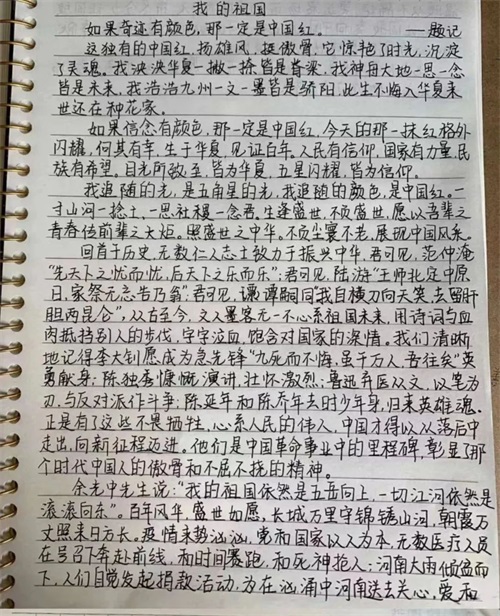 我的祖国
如果奇迹有颜色,那一定是中国红。——题记
这独有的中国红,扬雄风,挺傲骨,它惊艳了时光,沉淀
了灵魂。我泱泱华夏一撇一捺皆是脊梁,我神舟大地一思一念
皆是未来,我浩浩九州一文一墨皆是骄阳,此生不悔入华夏来
世还在种花家。
如果信念有颜色,那一定是中国红,今天的那一抹红格外
闪耀,何其有幸,生于华夏,见证百年。人民有信仰,国家有力量,民
族有希望。目光所致至,皆为华夏,五星闪耀,皆为信仰。
我追随的光,是五角星的光,我追随的颜色,是中国红。一
寸山河一捻土,一思社稷一念君。生逢盛世,不负盛世,愿以吾辈之
青春传前辈之大炬。照盛世之中华,不负尘寰不老,展现中国风采。
回首于历史,无数仁人志士致力于振兴中华,君可见,范仲淹
“先天下之忧而忧,后天下之乐而乐”;君可见,陆游“王师北定中原
日,家祭无忘告乃翁”,君可见,谭嗣同“我自横刀向天笑,去留肝
胆两昆仑”,从古至今,文人墨客无一不心系祖国未来,用诗词与血
肉抵挡别人的步伐,字字泣血,饱含对国家的深情。我们清晰
地记得李大钊愿成为急先锋“九死而不悔,虽千万人,吾往矣”英
勇献身;陈独秀慷慨演讲,壮怀激烈;鲁迅弃医从文,以笔为
刃,与反对派作斗争;陈延年和陈乔年去时少年身,归来英雄魂。
正是有了这些不畏牺牲,心系人民的伟人,中国才得以从落后中
走出,向新征程迈进。他们是中国革命事业中的里程碑,彰显了那
个时代中国人的傲骨和不屈不挠的精神。
余光中先生说:“我的祖国依然是五岳向上,一切江河依然是
滚滚向东”。百年风华,盛世如愿,长城万里守锦绣山河,朝霞万
丈照来日方长。疫情来势汹汹,党和国家以人为本,无数医疗人员
在号召下奔赴前线,和时间赛跑,和死神抢人;河南大雨倾盆而
下,人们自觉发起捐款活动,为在汹涌中河南送去关心,爱和